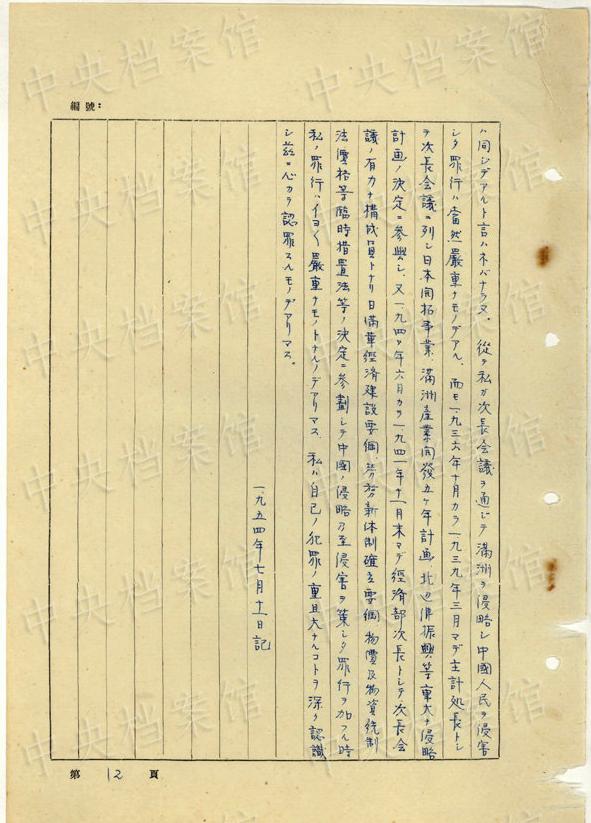 編號：
ハ同シデアルト言ハネバナラヌ。從テ私ガ次長会議ヲ通ジテ滿洲ヲ侵略シ中國人民ヲ侵害
シタ罪行ハ當然嚴重ナモノデアル。而モ一九三六年十月カラ一九三九年三月マデ主計処長トシ
テ次長会議ニ列シ日本開拓事業、滿洲産業開發五ケ年計画、北辺振興等重大ナ侵略
計画ノ決定ニ参與シ、又一九四〇年六月カラ一九四一年十一月末マデ經済部次長トシテ次長会
議ノ有力ナ構成員トナリ日滿華經済建設要綱、労務新体制確立要綱、物價及物資統制
法、價格等臨時措置法等ノ決定ニ参劃シテ中國ノ侵略乃至侵害ヲ策シタ罪行ヲ加フル時
私ノ罪行ハイヨ〱嚴重ナモノトナルノデアリマス。私ハ自己ノ犯罪ノ重且大ナルコトヲ深ク認識
シ茲ニ心カラ認罪スルモノデアリマス。
一九五四年七月十一日記
第 12 頁
中央档案馆